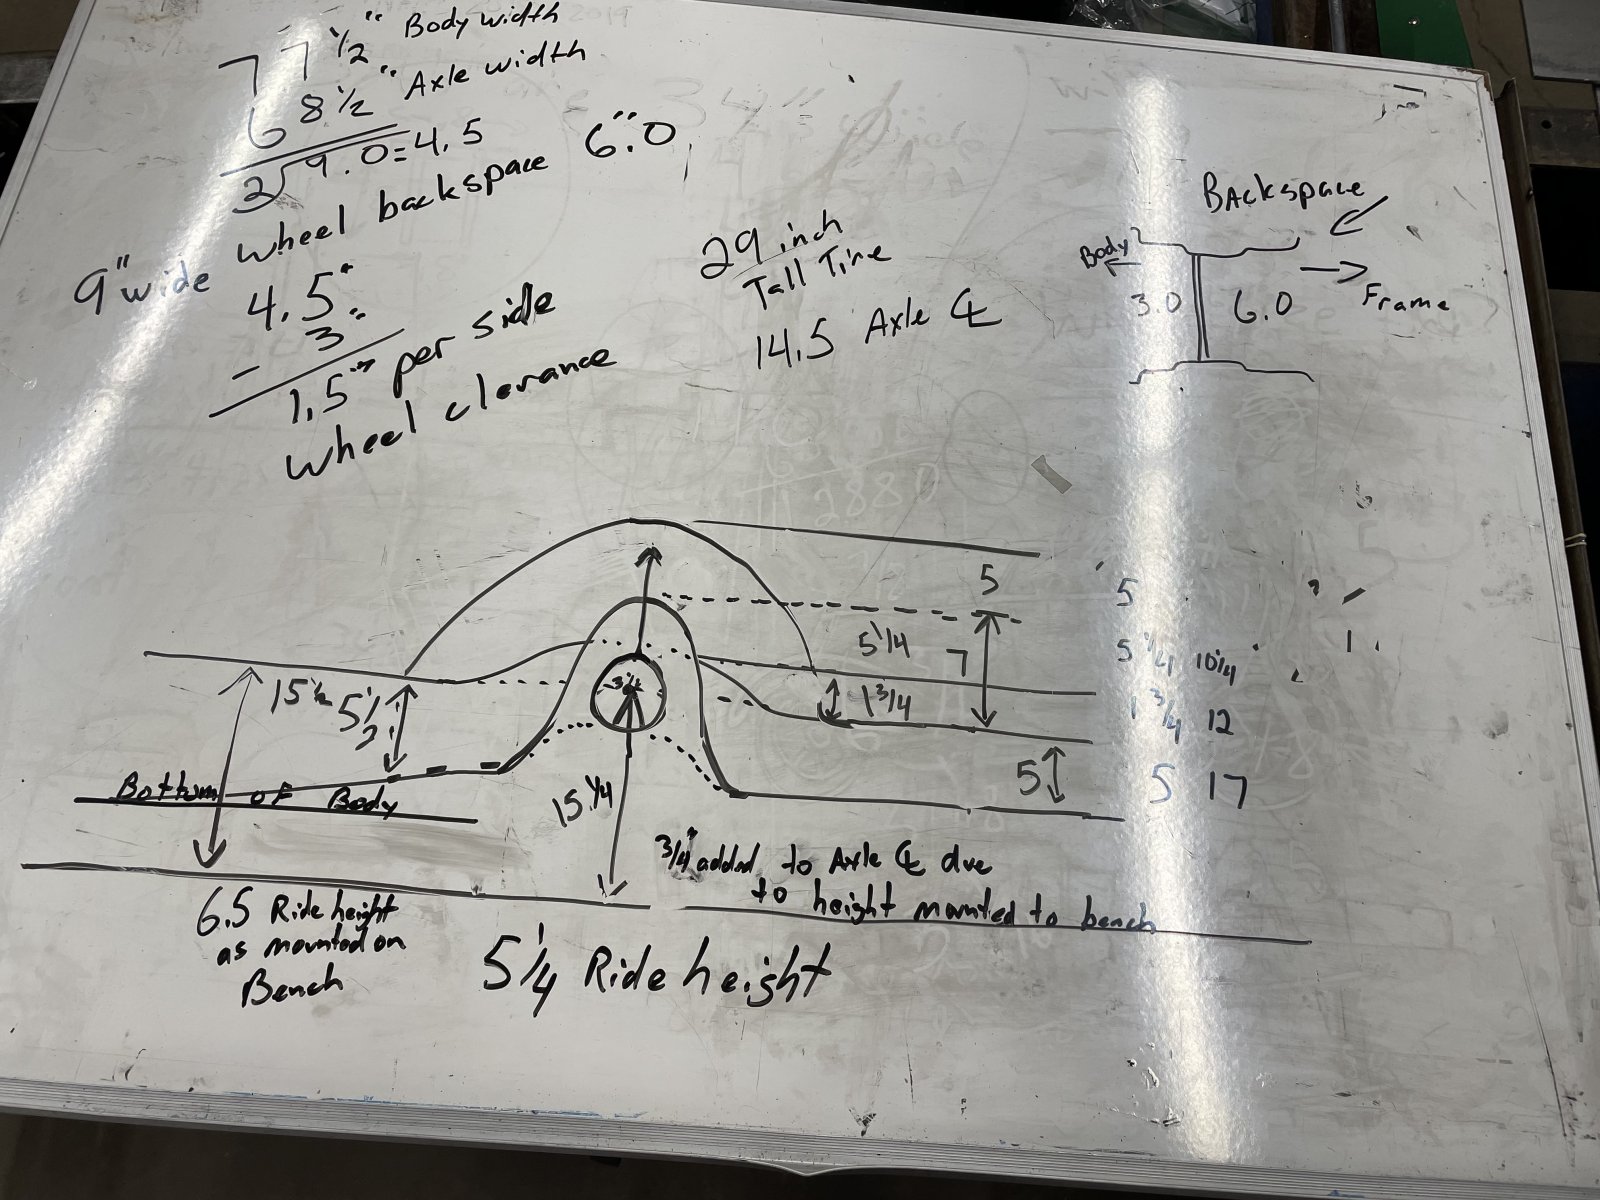 77 1/2" Body width
68 1/2" Axle width
2√9.0=4.5
9" wide wheel backspace 6.0"
4.5"
- 3"
1.5" per side
wheel clerance
29 inch
Tall Tire
14.5 Axle ℄
BAckspace
Body
3.0 6.0
Frame
5 5
5 1/4 7 5 1/4 10 1/4
15 1/2 5 1/2 1 3/4 1 3/4 12
5 5 17
Bottum of Body
15 1/4
3/4" added to Axle ℄ due
to height mounted to bench
6.5 Ride height
as mounted on
Bench
5 1/4 Ride height